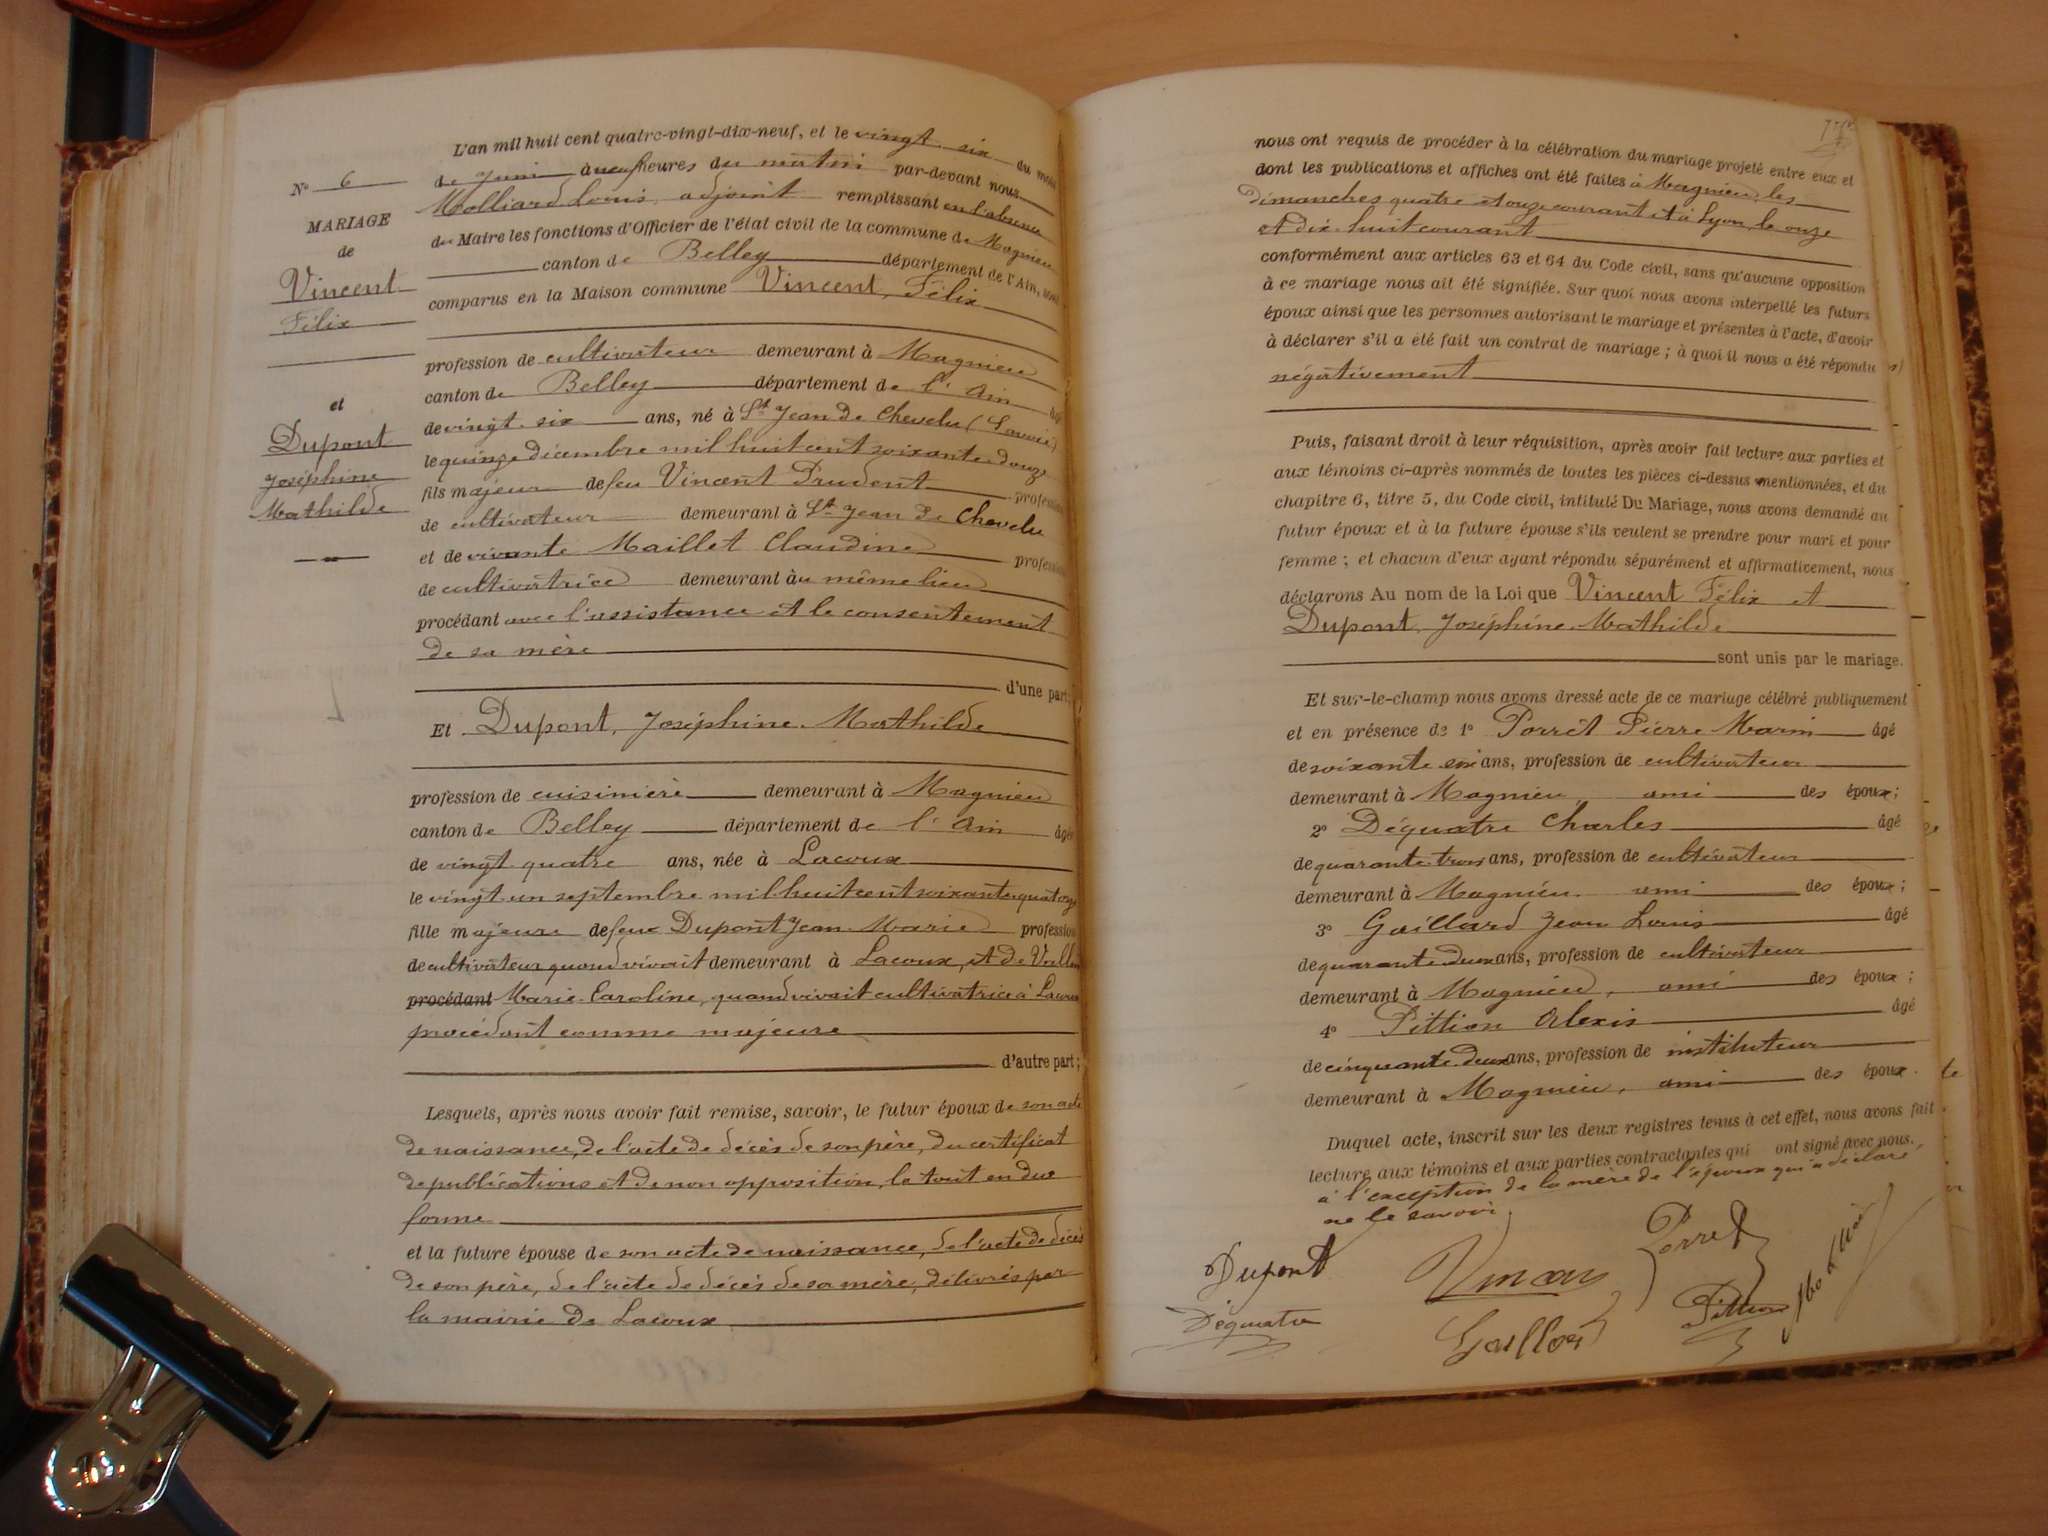 N° 6
MARIAGE
de
Vincent
Félix
et
Dupont
Joséphine
Mathilde
L'an mil huit cent quatre-vingt-dix-neuf, et le vingt six du mois
de Juin à neuf heures du matin par-devant nous
Molliard Louis, adjoint remplissant en l'absence
du Maire les fonctions d'Officier de l'état civil de la commune de Magnieu
canton de Belley département de l'Ain, sont
comparus en la Maison commune Vincent, Félix
profession de cultivateur demeurant à Magnieu
canton de Belley département de l'Ain âgé
de vingt six ans, né à St Jean de Chevelu (Savoie)
le quinze décembre mil huit cent soixante douze
fils majeur de feu Vincent Prudent profession
de cultivateur demeurant à St Jean de Chevelu
et de vivante Maillet Claudine profession
de cultivatrice demeurant au même lieu
procédant avec l'assistance et le consentement
de sa mère
d'une part;
Et Dupont, Joséphine Mathilde
profession de cuisinière demeurant à Magnieu
canton de Belley département de l'Ain âgée
de vingt quatre ans, née à Lacoux
le vingt un septembre mil huit cent soixante quatorze
fille majeure de feu Dupont Jean Marie profession
de cultivateur quand vivait demeurant à Lacoux, et de
procédant Marie Caroline, quand vivait cultivatrice à Lacoux
procédant comme majeure
d'autre part;
Lesquels, après nous avoir fait remise, savoir, le futur époux de son acte
de naissance, de l'acte de décès de son père, du certificat
de publications et de non opposition, le tout en due
forme
et la future épouse de son acte de naissance, de l'acte de décès
de son père, de l'acte de décès de sa mère, délivrés par
la mairie de Lacoux
nous ont requis de procéder à la célébration du mariage projeté entre eux et
dont les publications et affiches ont été faites à Magnieu, les
dimanches quatre et onze courant et à Lyon, le onze
et dix-huit courant
conformément aux articles 63 et 64 du Code civil, sans qu'aucune opposition
à ce mariage nous ait été signifiée. Sur quoi nous avons interpellé les futurs
époux ainsi que les personnes autorisant le mariage et présentes à l'acte, d'avoir
à déclarer s'il a été fait un contrat de mariage; à quoi il nous a été répondu
négativement
Puis, faisant droit à leur réquisition, après avoir fait lecture aux parties et
aux témoins ci-après nommés de toutes les pièces ci-dessus mentionnées, et du
chapitre 6, titre 5, du Code civil, intitulé Du Mariage, nous avons demandé au
futur époux et à la future épouse s'ils veulent se prendre pour mari et pour
femme; et chacun d'eux ayant répondu séparément et affirmativement, nous
déclarons Au nom de la Loi que Vincent Félix et
Dupont, Joséphine Mathilde
sont unis par le mariage.
Et sur-le-champ nous avons dressé acte de ce mariage célébré publiquement
et en présence de 1° Porret Pierre Marin âgé
de soixante six ans, profession de cultivateur
demeurant à Magnieu ami des époux;
2° Déquatre Charles âgé
de quarante trois ans, profession de cultivateur
demeurant à Magnieu ami des époux;
3° Gaillard Jean Louis âgé
de quarante deux ans, profession de cultivateur
demeurant à Magnieu, ami des époux;
4° Pittion Alexis âgé
de cinquante deux ans, profession de instituteur
demeurant à Magnieu, ami des époux.
Duquel acte, inscrit sur les deux registres tenus à cet effet, nous avons fait
lecture aux témoins et aux parties contractantes qui ont signé avec nous.
à l'exception de la mère de l'époux qui a déclaré
ne le savoir
Dupont
Vincent
Porret
Déquatre
Gaillard
Pittion